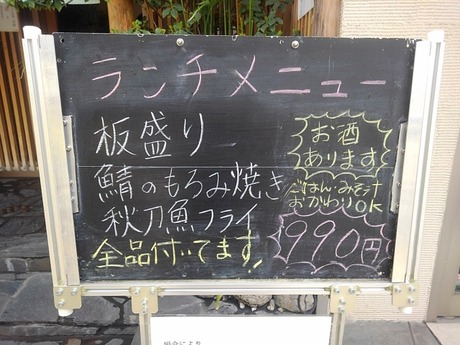 ランチメニュー
板盛り
鯖のもろみ焼き
秋刀魚フライ
全品付いてます!
お酒
あります
ごはん・みそ汁
おかわりok
990円